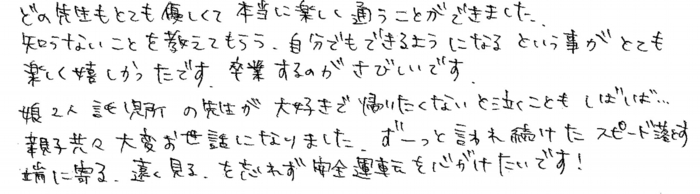 どの先生もとても優しくて本当に楽しく通うことができました。
知らないことを教えてもらう、自分でもできるようになるという事がとても
楽しく嬉しかったです。卒業するのがさびしいです。
娘2人 託児所の先生が大好きで帰りたくないと泣くこともしばしば…
親子共々大変お世話になりました。ずーっと言われ続けたスピード落とす
端に寄る、遠く見る、を忘れず安全運転を心がけたいです!